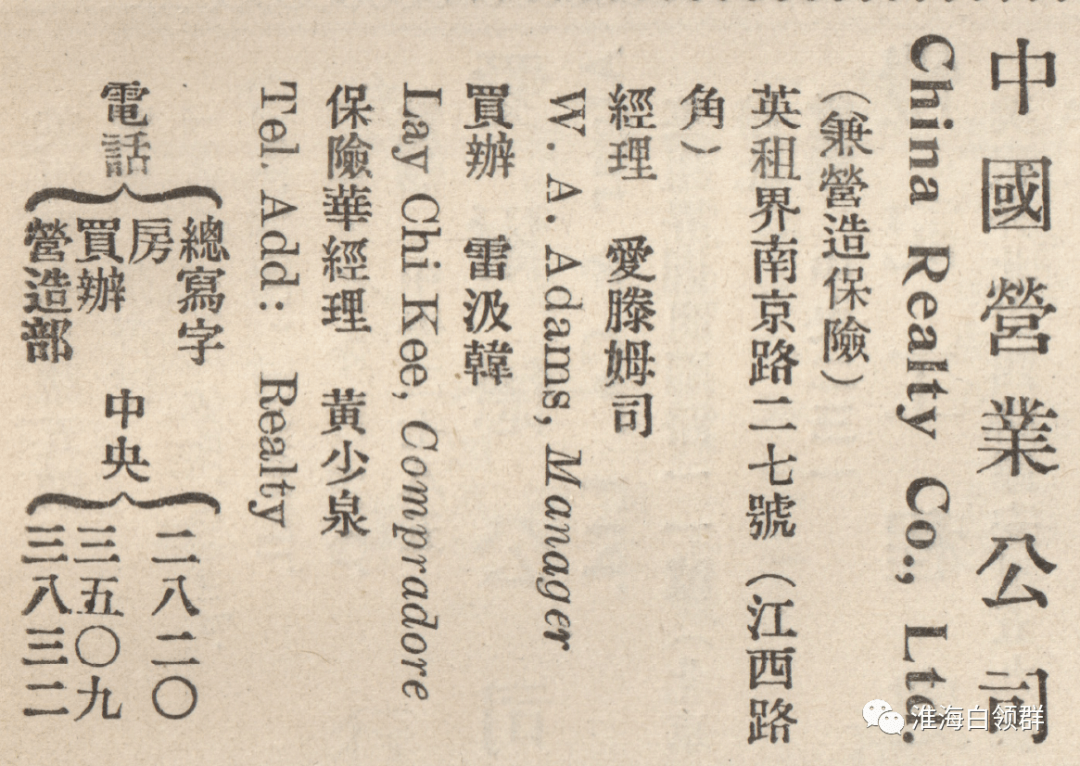 中國營業公司
China Realty Co., Ltd.
（兼營造保險）
英租界南京路二七號（江西路
角）
經理 愛滕姆司
W. A. Adams, Manager
買辦 雷汲韓
Lay Chi Kee, Compradore
保險華經理 黃少泉
Tel. Add: Realty
電話
總寫字
房
買辦
營造部
中央
二八二〇
三五〇九
三八三二
淮海白领群